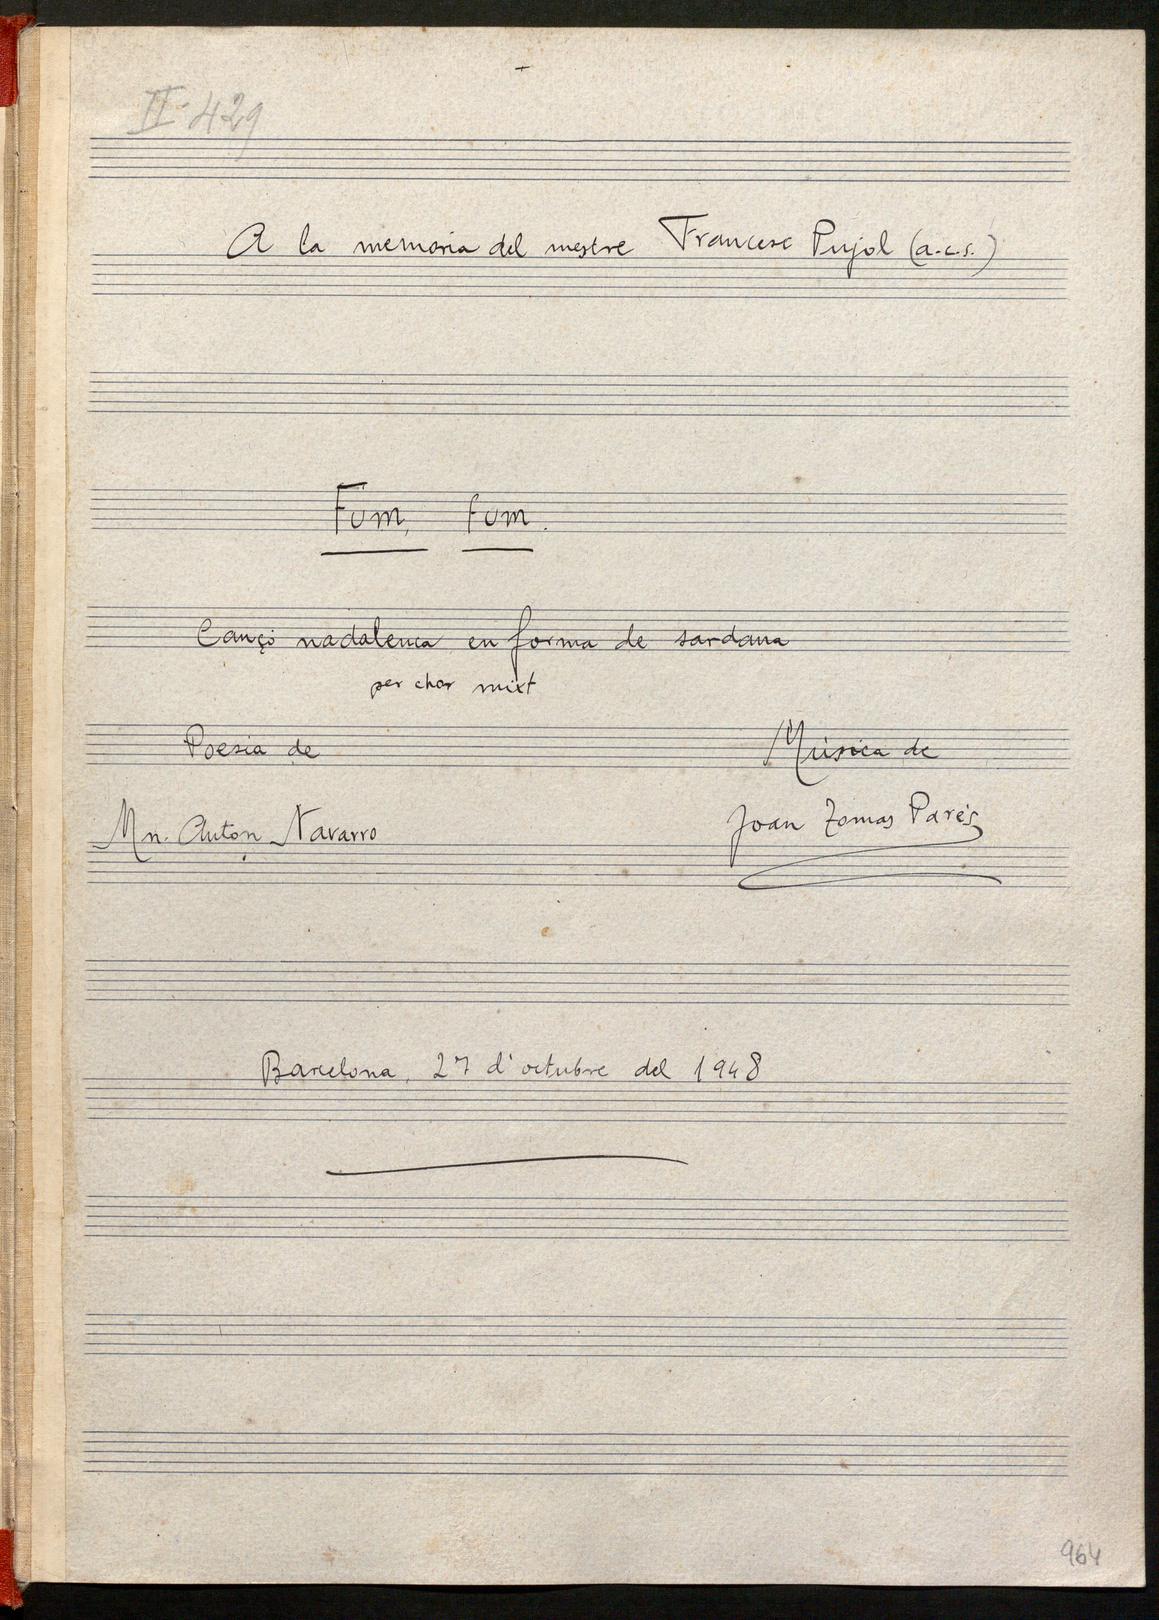 II-429
A la memoria del mestre Francesc Pujol (a.c.s.)
Fum, fum.
Cançó nadalenca en forma de sardana
per chor mixt
Poesia de
Música de
Mn. Anton Navarro
Joan Tomas Parés
Barcelona, 27 d'octubre del 1948
964